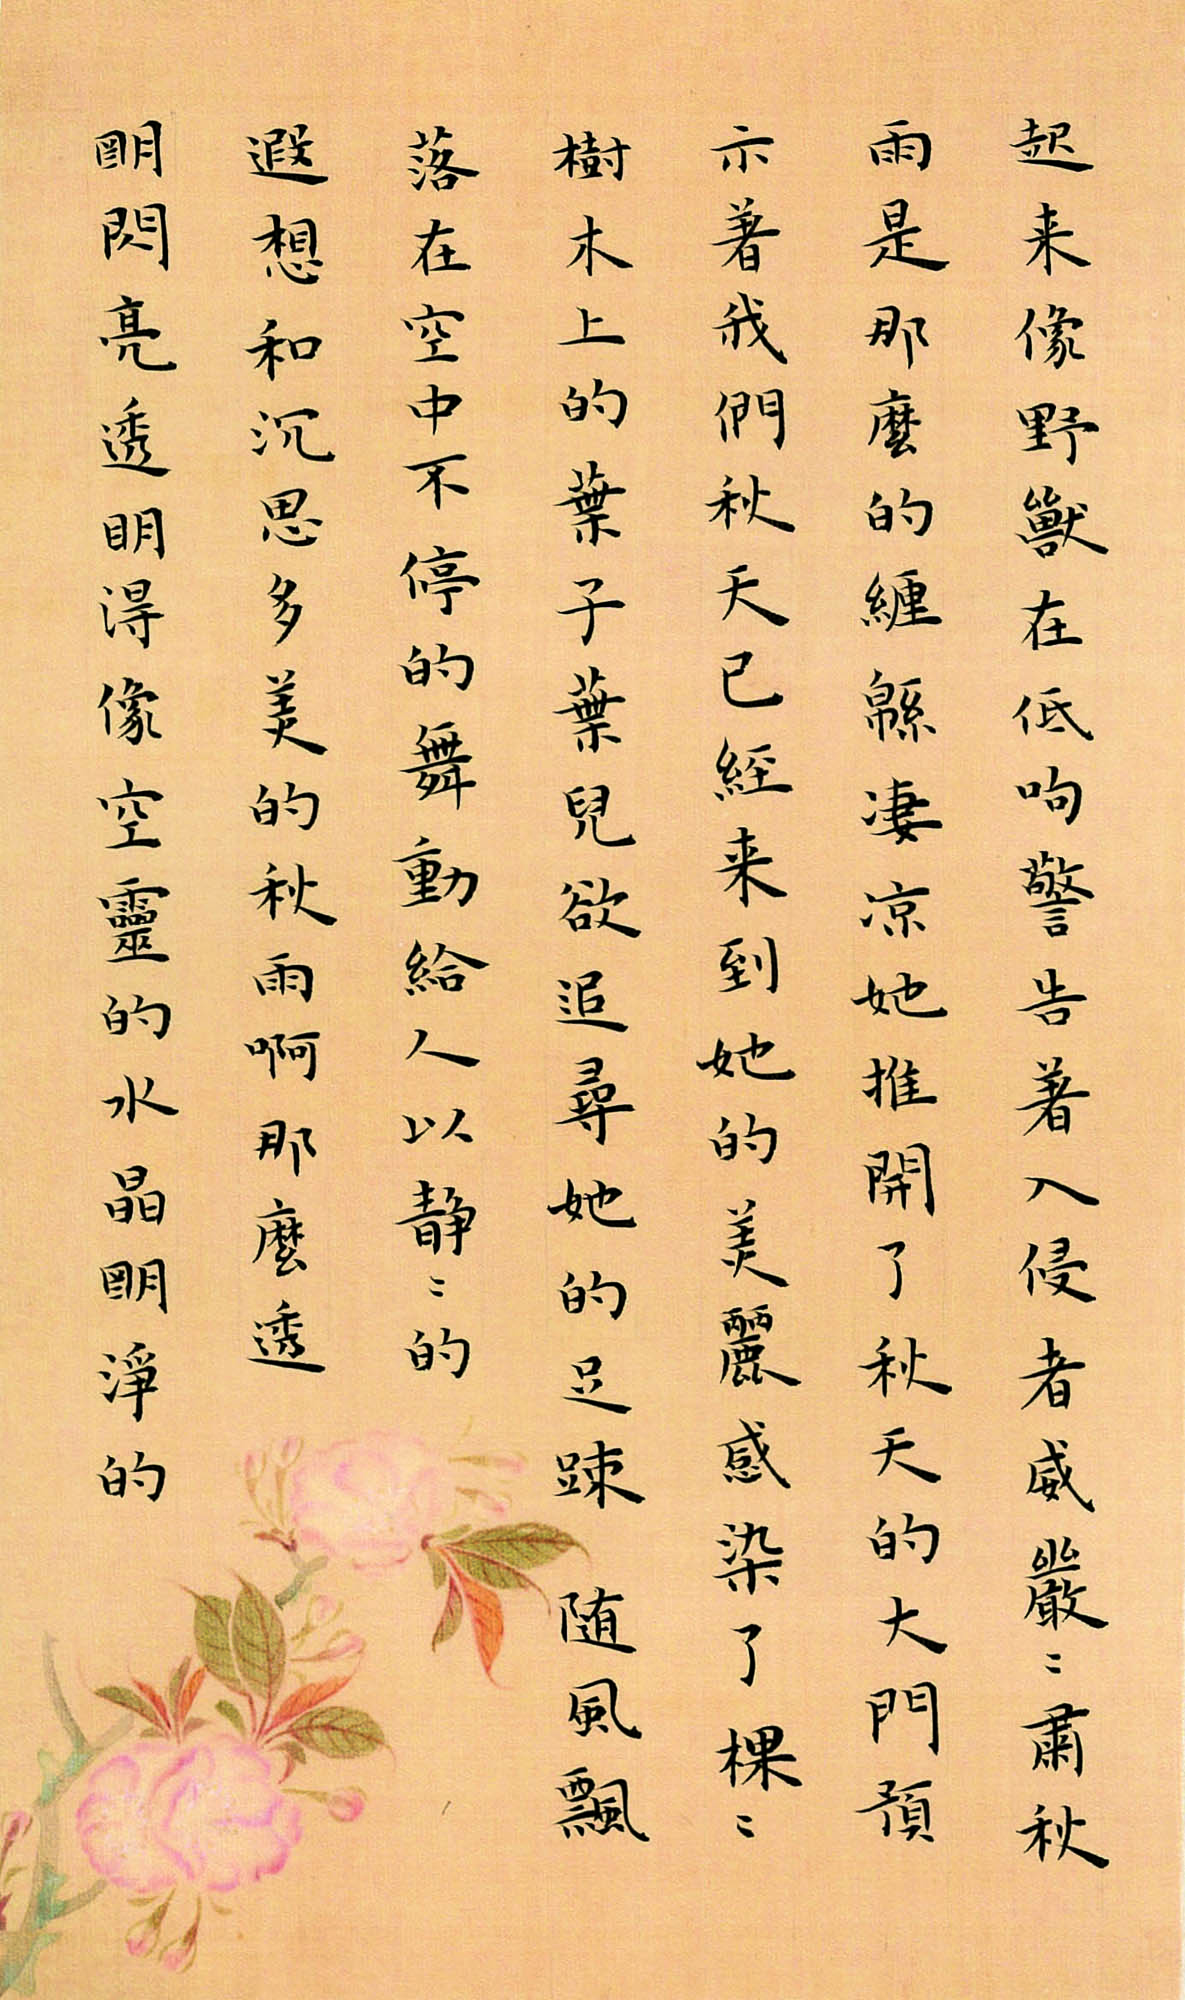 起来像野獸在低呴警告著入侵者威嚴〻肅秋
雨是那麼的纏緜凄凉她推開了秋天的大門預
示着我們秋天已經来到她的美麗感染了棵〻
樹木上的葉子葉兒欲追尋她的足踈 随風飄
落在空中不停的舞動給人以静〻的
遐想和沉思多美的秋雨啊那麼透
朙閃亮透明得像空靈的水晶朙淨的